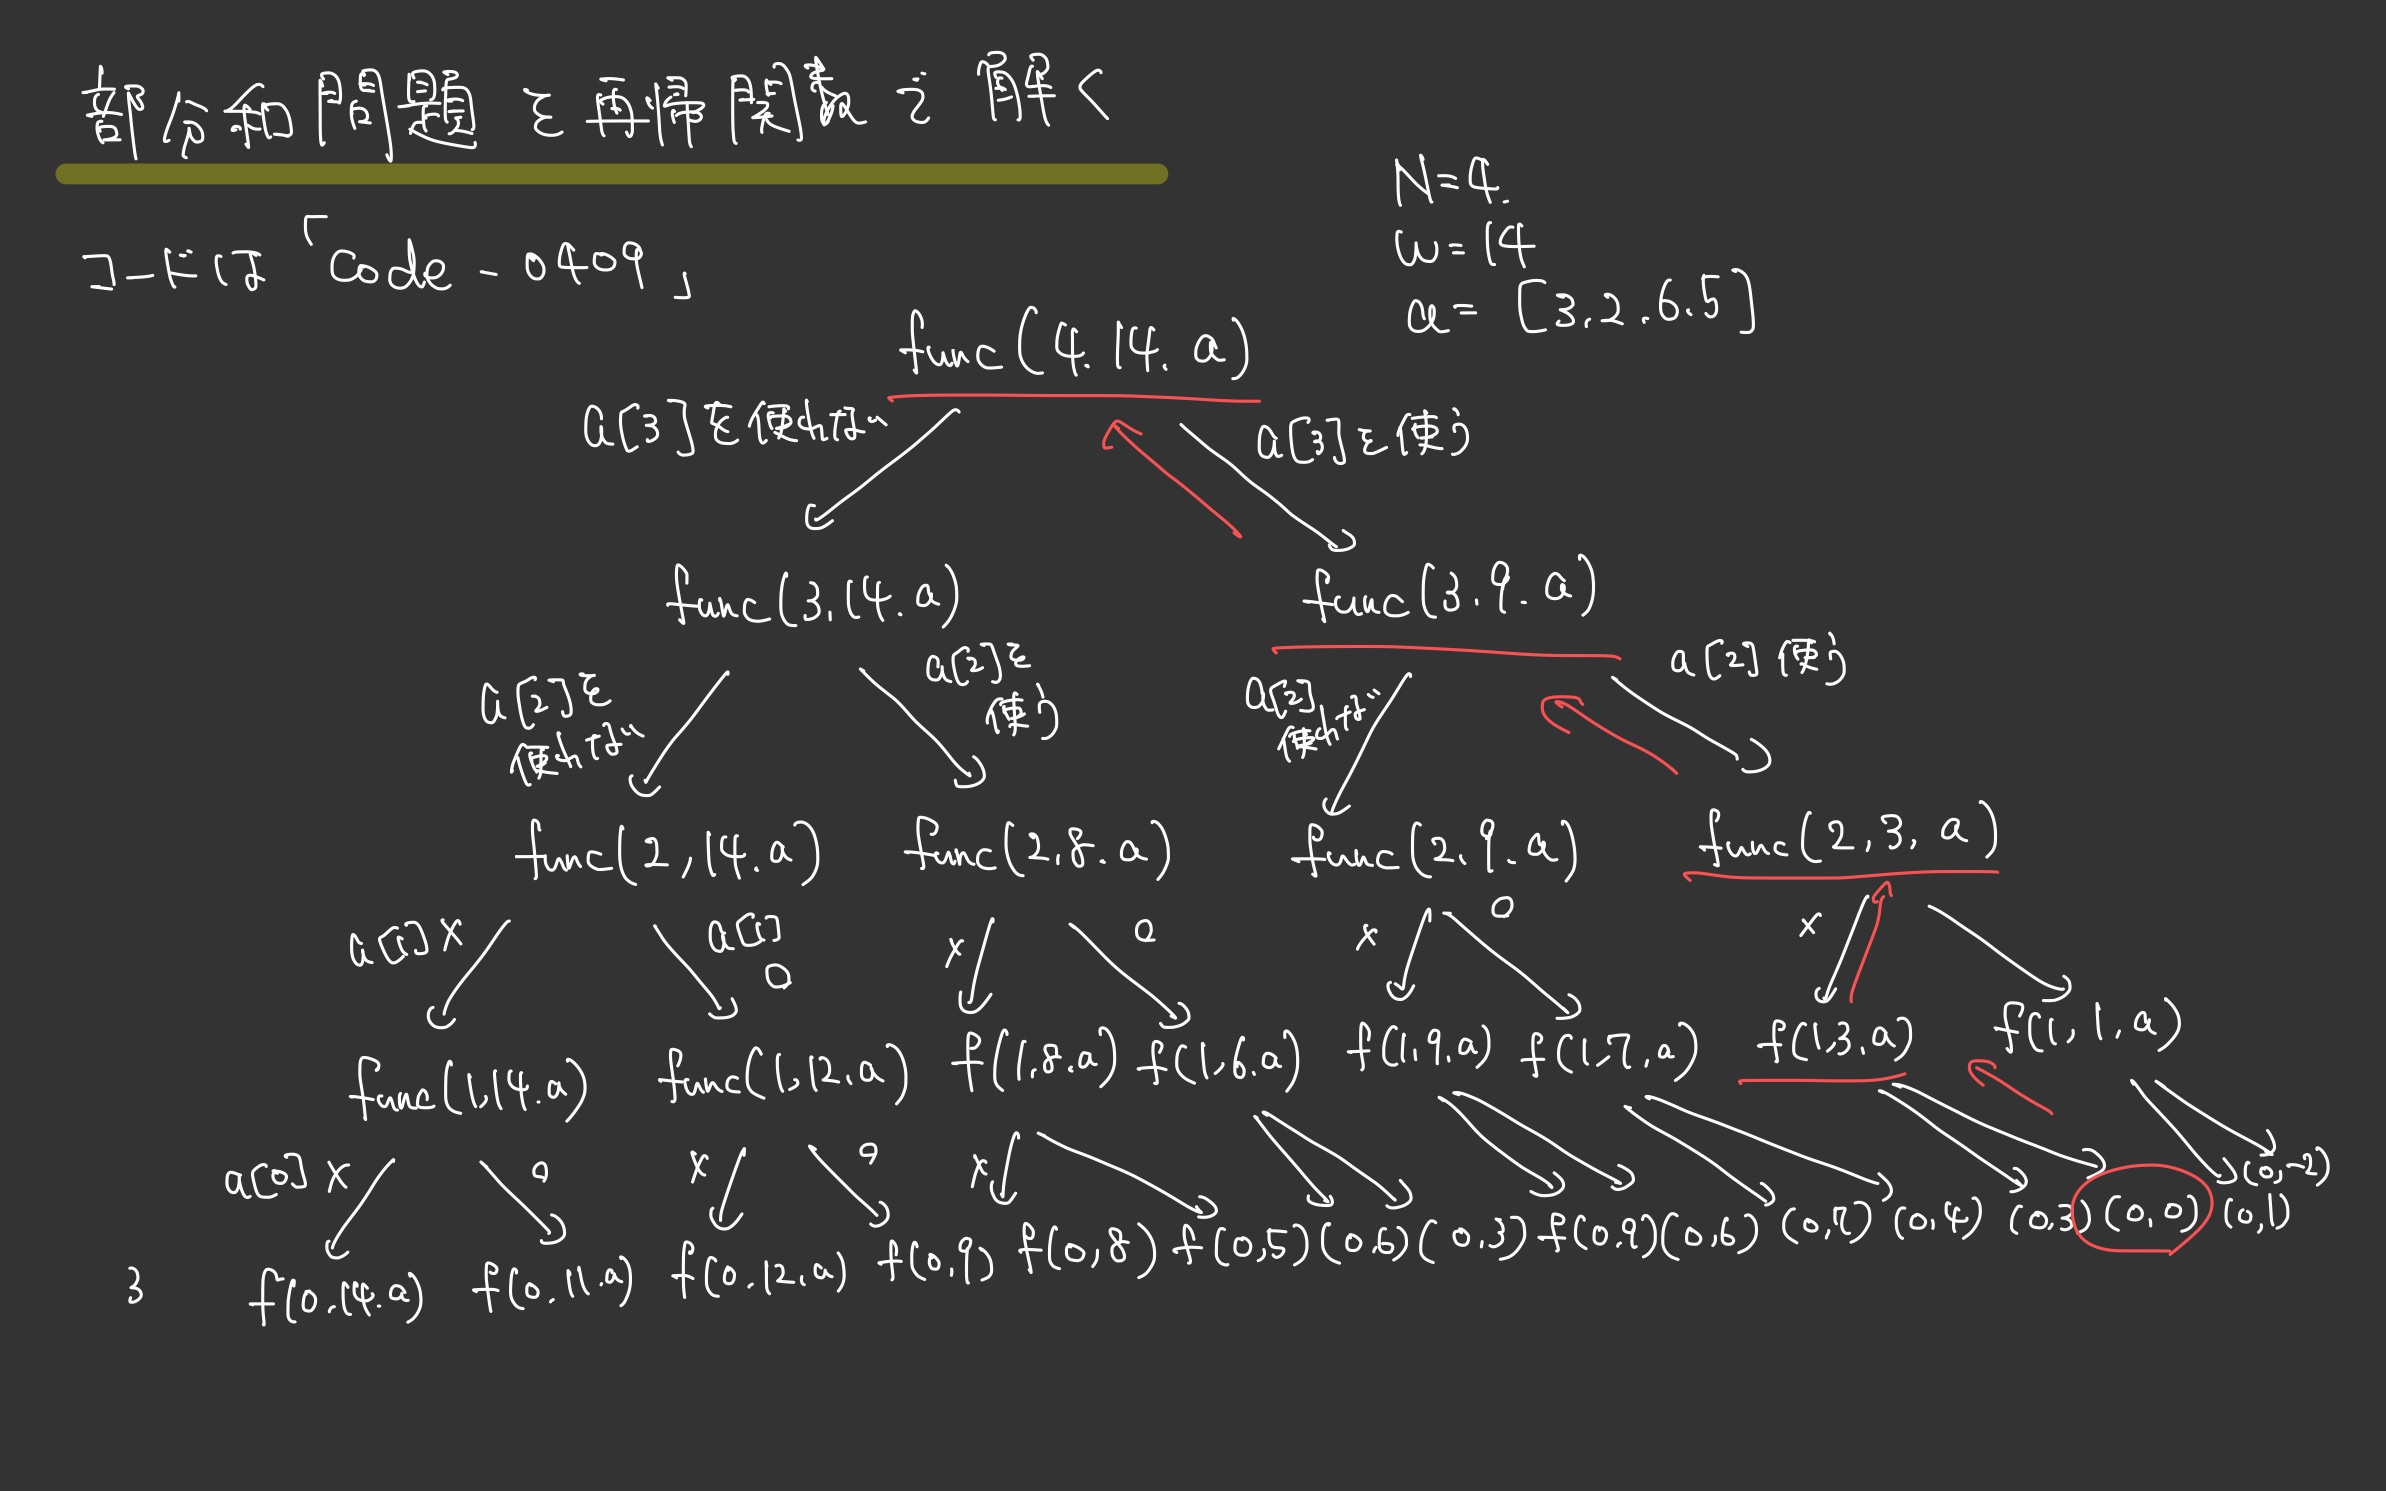 部分和問題を再帰関数で解く
コードは「Code-0409」
N=4.
W=14
a=[3.2.6.5]
func(4.14.a)
a[3]を使わない
a[3]を使う
func(3.14.a)
func(3.9.a)
a[2]を
使わない
a[2]を
使う
a[2]
使わない
a[2]使う
func(2,14.a)
func(2.8.a)
func(2.9.a)
func(2,3,a)
a[1]X
a[1]
O
x
O
x
O
x
func(1,14.a)
func(1,12.a)
f(1.8.a)
f(1,6.a)
f(1.9.a)
f(1,7.a)
f(1,3.a)
f(1,1.a)
a[0]X
O
X
O
X
f(0.14.a)
f(0.11.a)
f(0.12.a)
f(0,9)
f(0,8)
f(0,5)
(0.6)
(0.3)
f(0.9)
(0,6)
(0,7)
(0,4)
(0,3)
(0,0)
(0,1)
(0,-2)
3